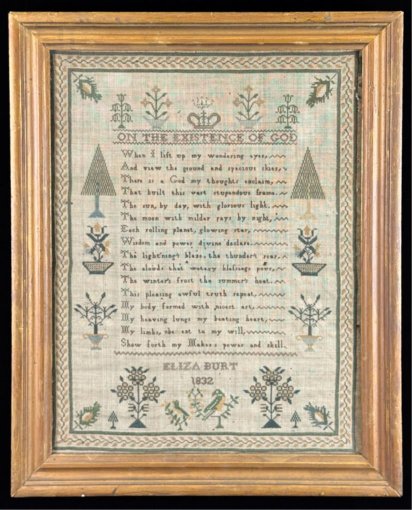 ON THE EXISTENCE OF GOD
When I lift up my wondering eyes,
And view the ground and spacious skies,
There is a God my thoughts exclaim,
That built this vast stupendous frame.
The sun, by day, with glorious light,
The moon with milder rays by night,
Each rolling planet, glowing star,
Wisdom and power divine declare.
The lightning's blaze, the thunder's roar
The clouds that watery blessings pour,
The winter's frost the summer's heat.
This pleasing awful truth repeat,
My body formed with nicest art.
My heaving lungs my beating heart,
My limbs, obe ent to my will,
Shew forth my Makers power and skill.
ELIZA BURT
1832